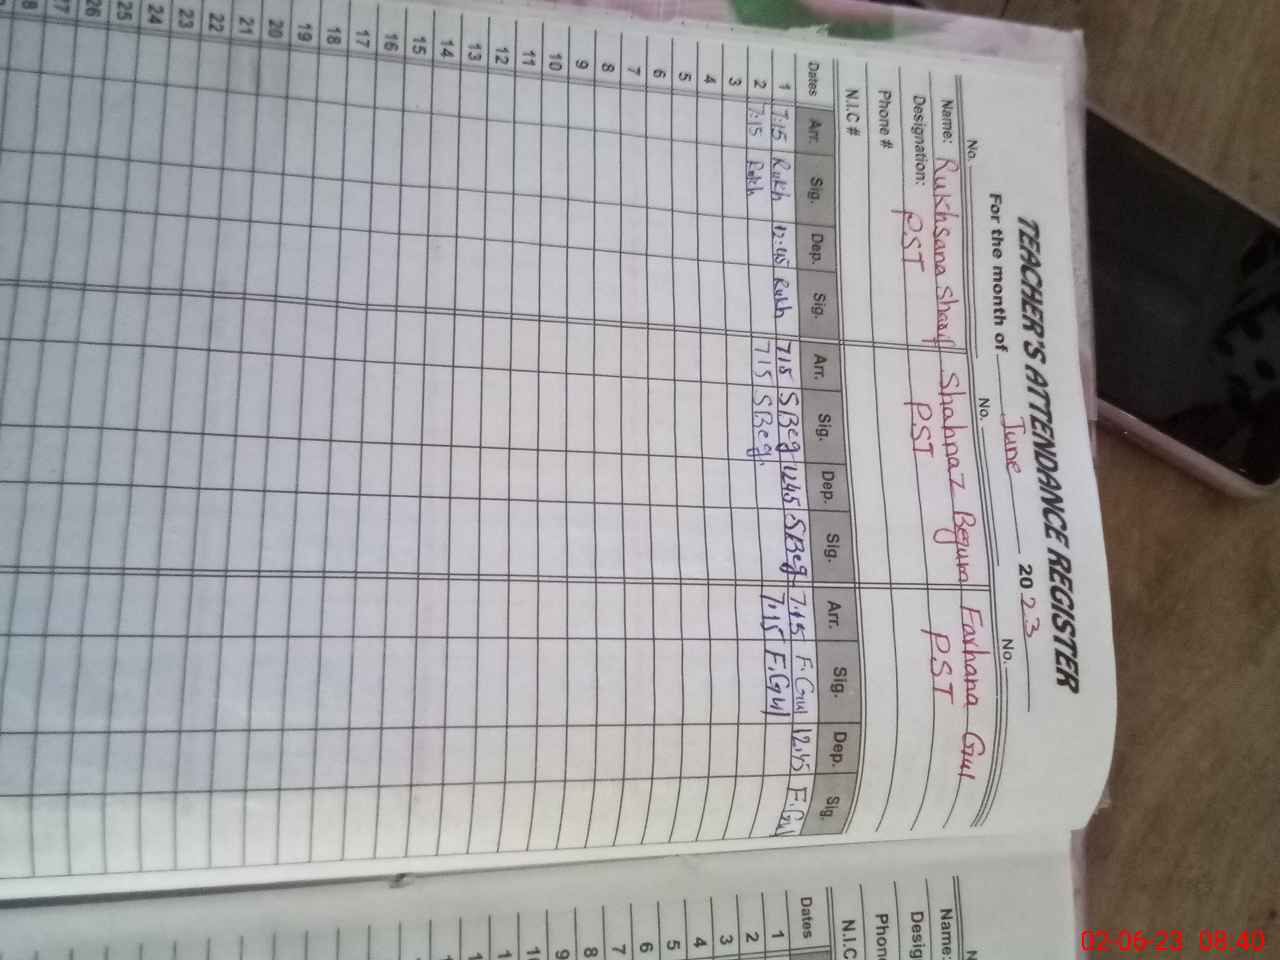 TEACHER'S ATTENDANCE REGISTER
For the month of June 2023
No. No. No.
Name: Rukhsana Sharif Shahnaz Begum Farhana Gul
Designation: P.ST P.ST P.ST
Phone #
N.I.C #
Dates Arr. Sig. Dep. Sig. Arr. Sig. Dep. Sig. Arr. Sig. Dep. Sig.
1 7:15 Rukh 12:45 Rukh 715 SBeg 1245 SBeg. 7.15 F.Gul 12.45 F.Gul
2 7:15 Rukh 715 SBeg. 7.15 F.Gul
3
4
5
6
7
8
9
10
11
12
13
14
15
16
17
18
19
20
21
22
23
24
25
26
27
8
N
Name:
Desig
Phon
N.I.C
Dates
1
2
3
4
5
6
7
8
9
02-06-23 08:40